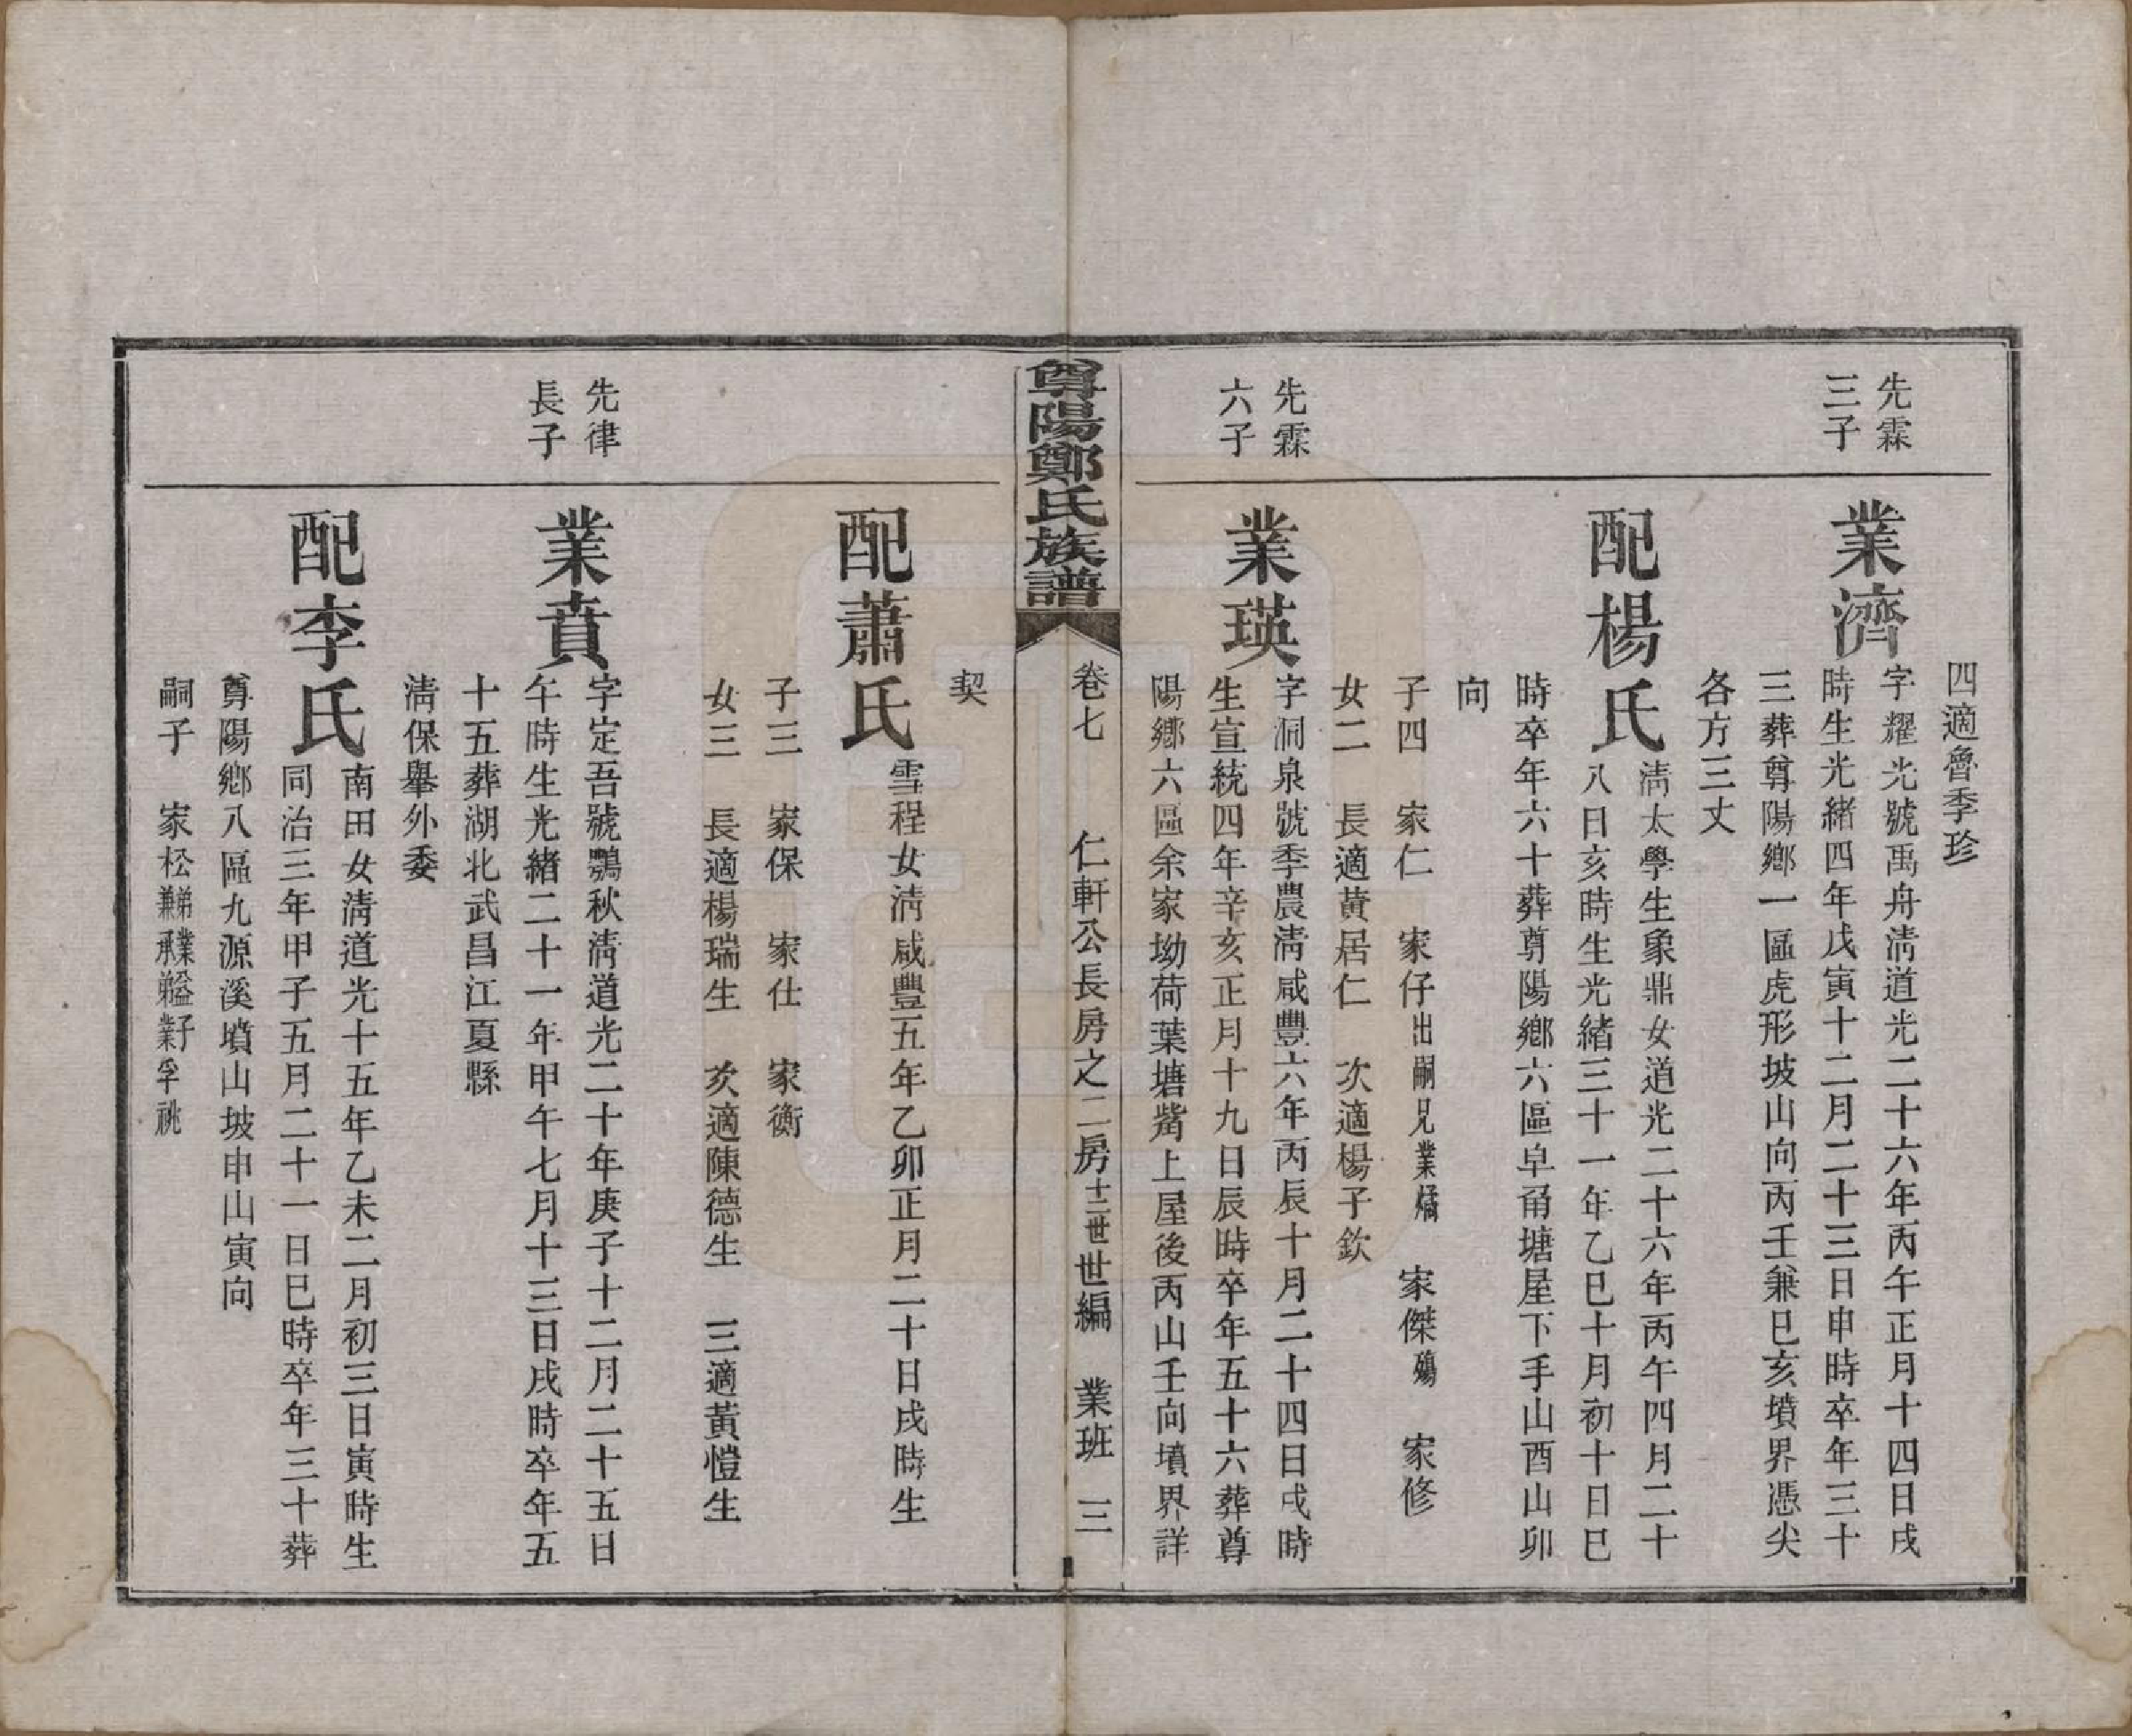 四適魯季珍
先霖
三子
業濟
字耀光號禹舟淸道光二十六年丙午正月十四日戌
時生光緒四年戊寅十二月二十三日申時卒年三十
三葬尊陽鄕一區虎形坡山向丙壬兼巳亥墳界憑尖
各方三丈
配楊氏
淸太學生象鼎女道光二十六年丙午四月二十
八日亥時生光緒三十一年乙巳十月初十日巳
時卒年六十葬尊陽鄕六區阜甬塘屋下手山酉山卯
向
子四 家仁 家仔出嗣兄業燏 家傑殤 家修
女二 長適黃居仁 次適楊子欽
先霖
六子
業瑛
字洞泉號季農淸咸豐六年丙辰十月二十四日戌時
生宣統四年辛亥正月十九日辰時卒年五十六葬尊
陽鄕六區余家坳荷葉塘觜上屋後丙山壬向墳界詳
尊陽鄭氏族譜 卷七 仁軒公長房之二房十二世世編 業班 三
契
配蕭氏
雪程女淸咸豐五年乙卯正月二十日戌時生
子三 家保 家仕 家衡
女三 長適楊瑞生 次適陳德生 三適黃愷生
先律
長子
業賁
字定吾號鶚秋淸道光二十年庚子十二月二十五日
午時生光緒二十一年甲午七月十三日戌時卒年五
十五葬湖北武昌江夏縣
淸保舉外委
配李氏
南田女淸道光十五年乙未二月初三日寅時生
同治三年甲子五月二十一日巳時卒年三十葬
尊陽鄕八區九源溪墳山坡申山寅向
嗣子 家松兼承弟業孚祧弟業益子